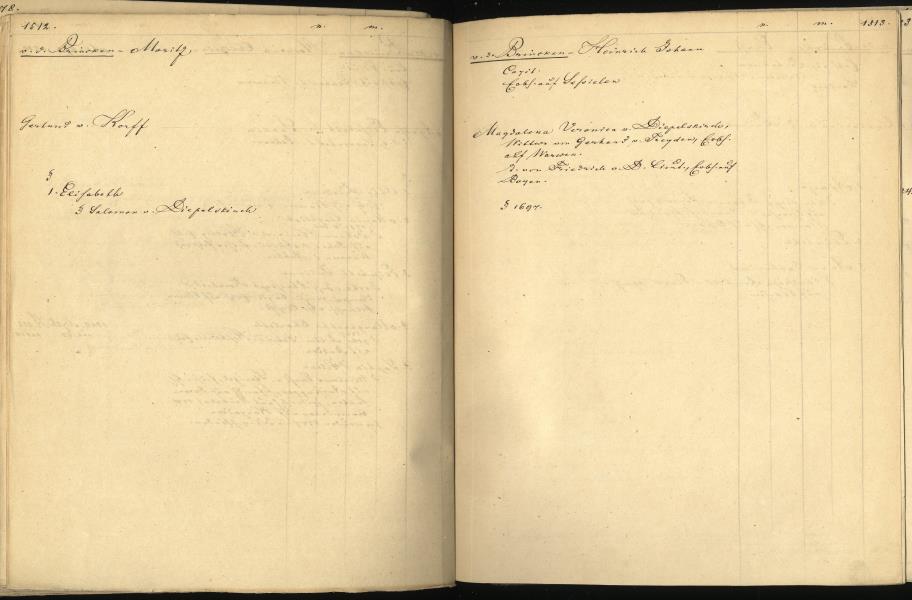 78.
1512.
n.
m.
v. d. Brincken - Moritz,
Gertrud v. Korff
§
1. Elisabeth
§ Salomon v. Diepelskirch
n.
m.
1513.
v. d. Brincken - Heinrich Johann
Capit.
Erbh. auf
Magdalena Veronica v. Diepelskirch,
Wittwe von Gerhard v. Treyden, Erbh.
auf
T. von Friedrich v. D. Lieut., Erbh. auf
§ 1697.